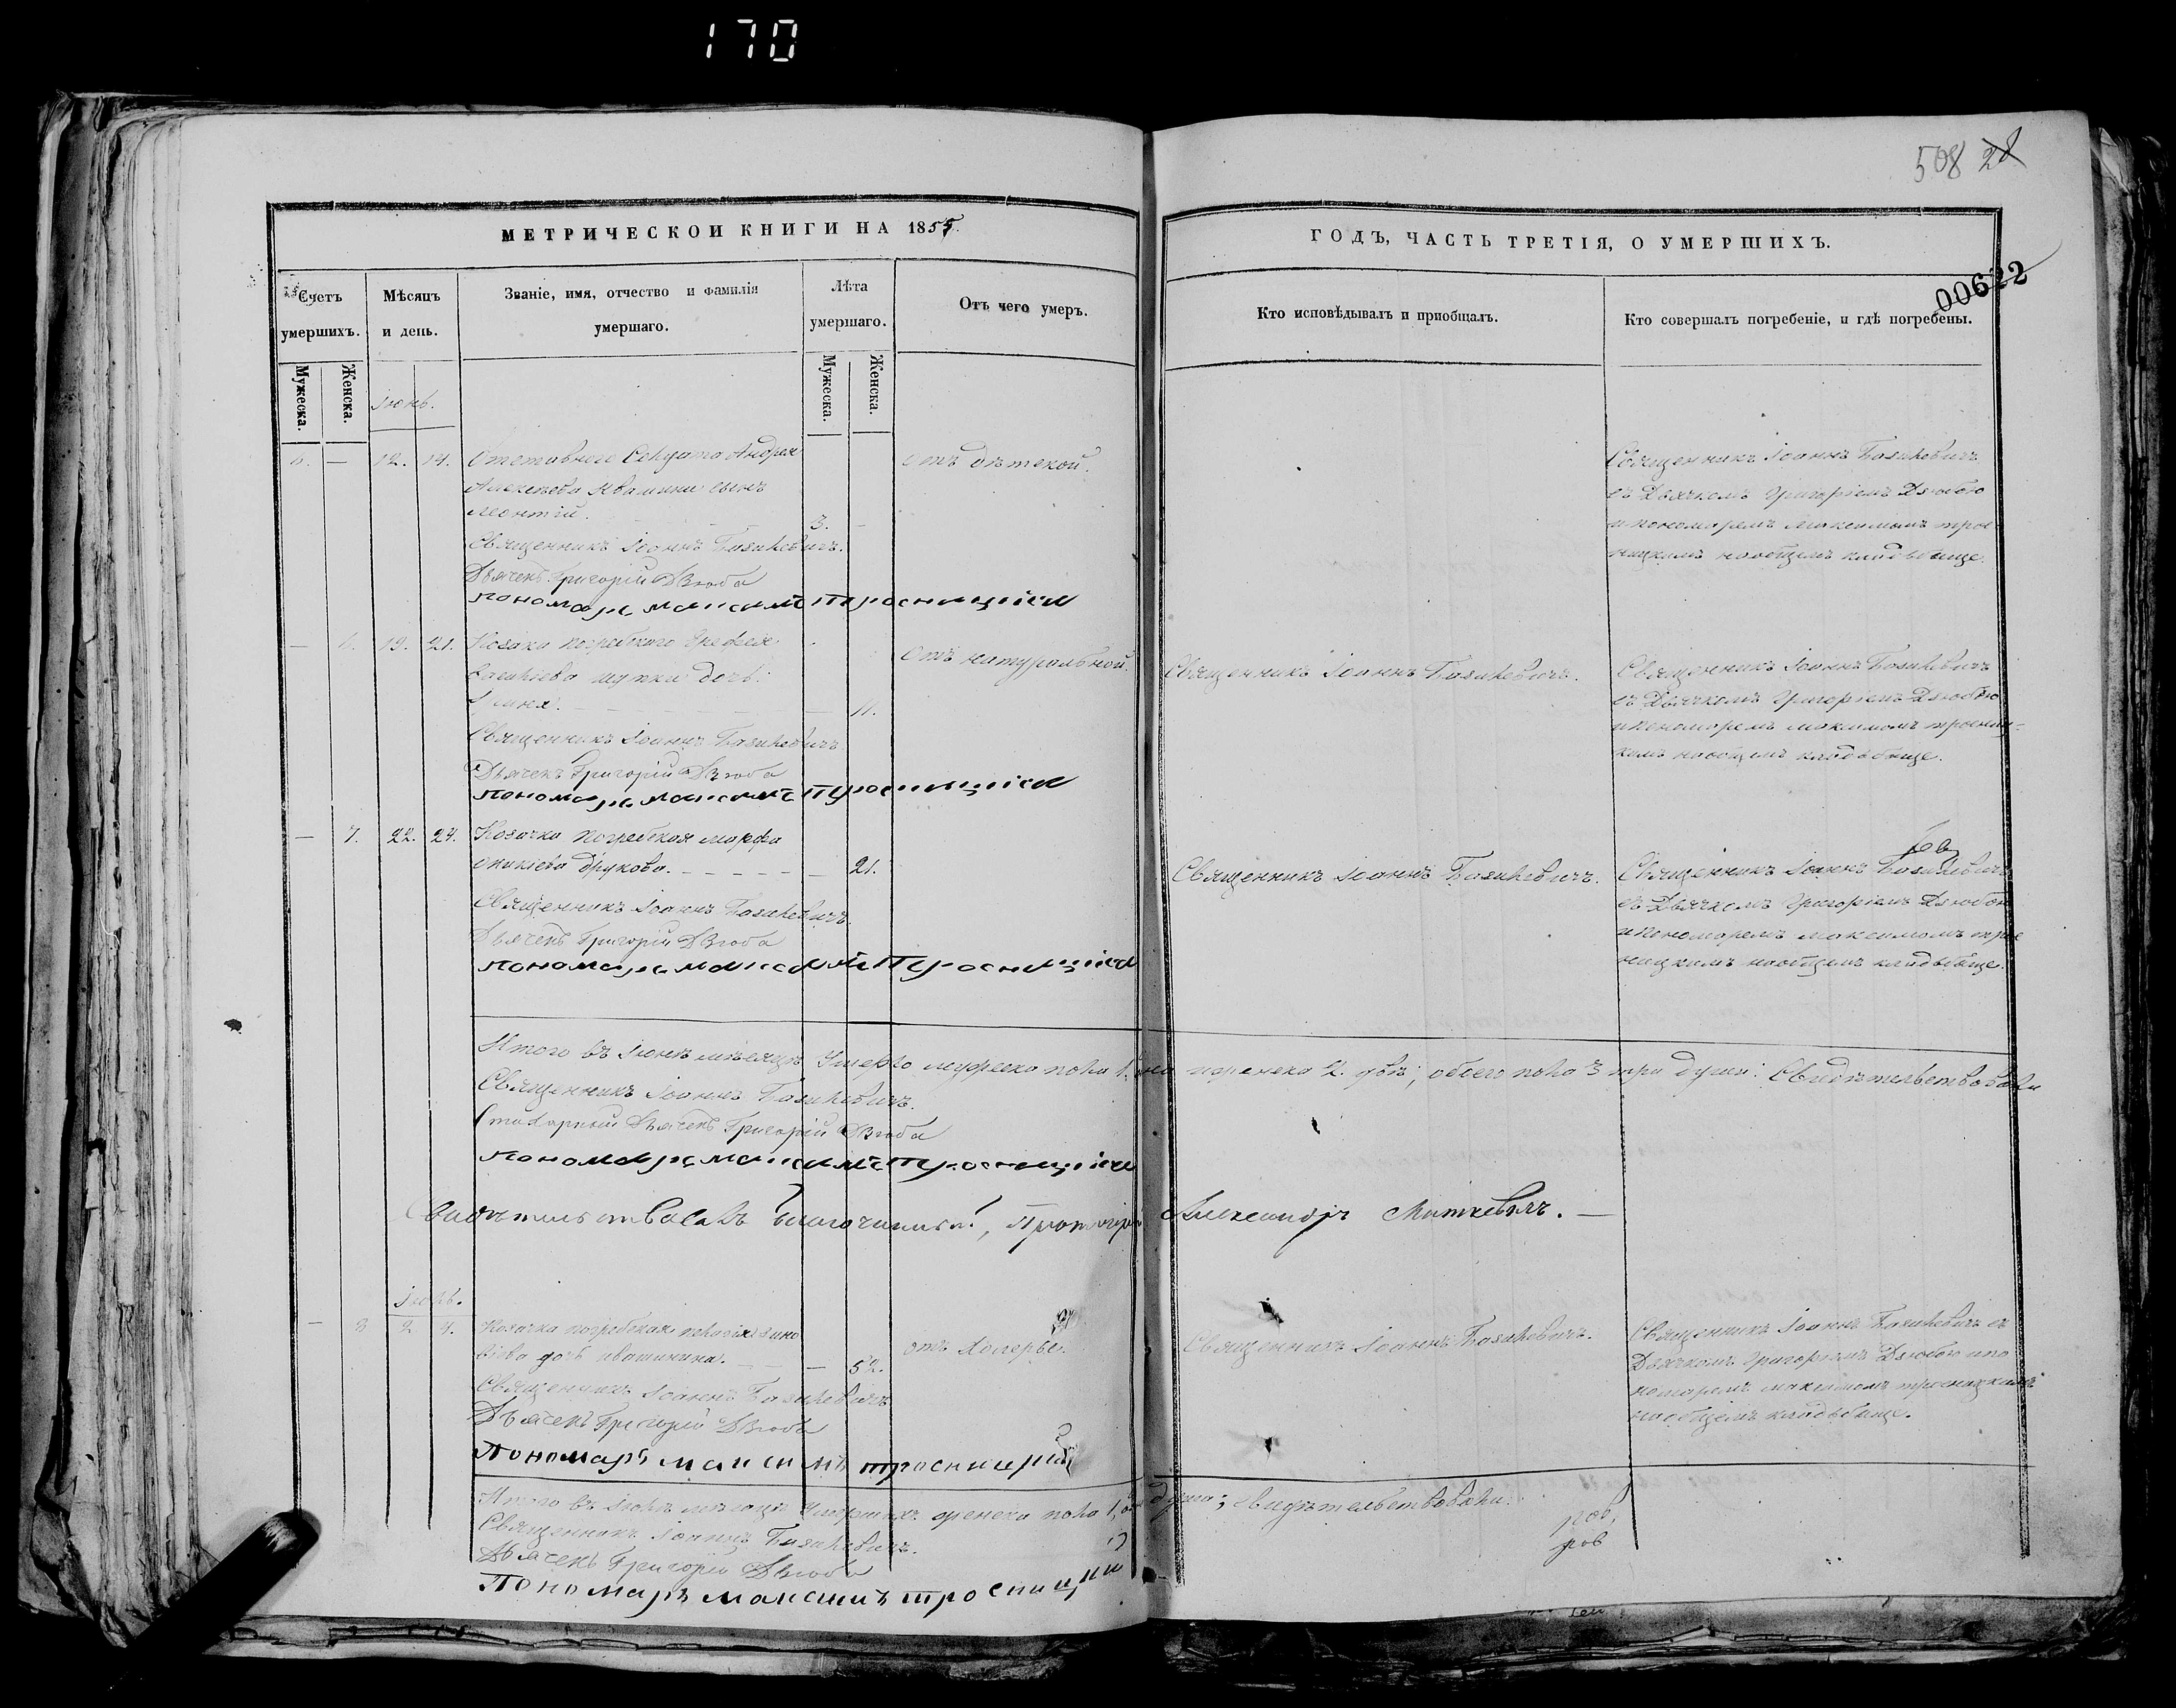 170
508 28
00622
МЕТРИЧЕСКОИ КНИГИ НА 1855.
ГОДЪ, ЧАСТЬ ТРЕТІЯ, О УМЕРШИХЪ.
Счетъ умершихъ.
Мѣсяцъ и день.
Званіе, имя, отчество и фамилія умершаго.
Лѣта умершаго.
Отъ чего умеръ.
Кто исповѣдывалъ и пріобщалъ.
Кто совершалъ погребеніе, и гдѣ погребены.
Мужеска.
Женска.
Мужеска.
Женска.
Іюнь.
6. — 12. 14. Андрея
сынъ
Леонтій. 3.
отъ дѣтской.
Священникъ Іоаннъ Базилевичъ
съ Дьячкомъ Григоріемъ Дзюбою
и пономаремъ Максимомъ трос-
ницкимъ на общемъ кладбище.
Священникъ Іоаннъ Базилевичъ.
Дьячекъ Григорій Дзюба
пономарь максимъ Тросницкій
— 6. 19. 21. Козака погребского
дочь.
11.
отъ натуральной.
Священникъ Іоаннъ Базилевичъ.
Священникъ Іоаннъ Базилевичъ
съ Дьячкомъ Григоріемъ Дзюбою
и пономаремъ максимомъ тросниц-
кимъ на общемъ кладбище.
Священникъ Іоаннъ Базилевичъ
Дьячекъ Григорій Дзюба
пономарь максимъ Тросницкій
— 7. 22. 24. Козачка погребская марфа
21.
Священникъ Іоаннъ Базилевичъ.
Священникъ Іоаннъ Базилевичъ
съ Дьячкомъ Григоріемъ Дзюбою
и пономаремъ максимомъ трос
ницкимъ на общемъ кладбище.
Священникъ Іоаннъ Базилевичъ.
Дьячекъ Григорій Дзюба
пономарь максимъ Тросницкій
Итого въ Іюнѣ мѣсяцѣ умерло мужеска пола 1. женска 2. двѣ; обоего пола 3 три души: Свидѣтельствовали
Священникъ Іоаннъ Базилевичъ.
Дьячекъ Григорій Дзюба
пономарь максимъ Тросницкій
Свидѣтельствовалъ Благочинный, Протоіерей Александръ Миткевичъ. —
Іюль.
— 8 2 4. Козачка погребская
дочь 52.
отъ Холеры.
Священникъ Іоаннъ Базилевичъ.
Священникъ Іоаннъ Базилевичъ съ
Дьячкомъ Григоріемъ Дзюбою и по
номаремъ максимомъ тросницкимъ
на общемъ кладбище.
Священникъ Іоаннъ Базилевичъ
Дьячекъ Григорій Дзюба
Пономарь максимъ тросницкій
Итого въ Іюлѣ мѣсяцѣ умершихъ женска пола 1, душа; свидѣтельствовали.
Священникъ Іоаннъ Базилевичъ.
Дьячекъ Григорій Дзюба
Пономарь максимъ тросницкій